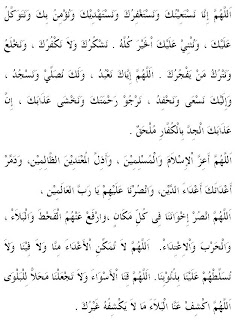 اَللّٰهُمَّ إِنَّا نَسْتَعِيْنُكَ وَنَسْتَغْفِرُكَ وَنَسْتَهْدِيْكَ وَنُؤْمِنُ بِكَ وَنَتَوَكَّلُ
عَلَيْكَ ، وَنُثْنِيْ عَلَيْكَ اَلْخَيْرَ كُلَّهُ . نَشْكُرُكَ وَلَا نَكْفُرُكَ ، وَنَخْلَعُ
وَنَتْرُكُ مَنْ يَفْجُرُكَ . اَللّٰهُمَّ إِيَّاكَ نَعْبُدُ ، وَلَكَ نُصَلِّيْ وَنَسْجُدُ ،
وَإِلَيْكَ نَسْعَى وَنَحْفِدُ ، نَرْجُوْ رَحْمَتَكَ وَنَخْشَى عَذَابَكَ ، إِنَّ
عَذَابَكَ الْجِدَّ بِالْكُفَّارِ مُلْحَقٌ .
اَللّٰهُمَّ أَعِزَّ الْإِسْلَامَ وَالْمُسْلِمِيْنَ ، وَأَذِلَّ الْمُعْتَدِيْنَ الظَّالِمِيْنَ، وَدَمِّرْ
أَعْدَائَكَ أَعْدَاءَ الدِّيْنِ، وَانْصُرْنَا عَلَيْهِمْ يَا رَبَّ الْعَالَمِيْنَ ،
اَللّٰهُمَّ انْصُرْ إِخْوَانَنَا فِى كُلِّ مَكَانٍ ,وَارْفَعْ عَنْهُمُ الْقَحْطَ وَالْبَلَاءَ ،
وَالْحَرْبَ وَالْاِعْتِدَاءَ. اَللّٰهُمَّ لَا تُمَكِّنِ الْأَعْدَاءَ مِنَّا وَلَا فِيْنَا وَلَا
تُسَلِّطْهُمْ عَلَيْنَا بِذُنُوْبِنَا. اَللّٰهُمَّ قِنَا الْأَسْوَاءَ وَلَا تَجْعَلْنَا مَحَلًّا لِلْبَلْوَى
اَللّٰهُمَّ اكْشِفْ عَنَّا الْبَلَاءَ مَا لَا يَكْشِفُهُ غَيْرُكَ .